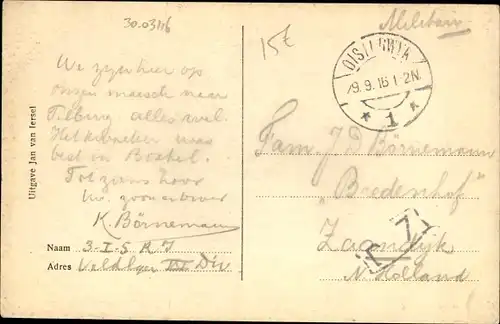 30.03416
15£
Militair
OISTERWIJK
29.9.16 1-2N
* 1 *
We zijn hier op
onzen marsch naar
Tilburg alles wel.
Het kwartier was
best in Boxtel.
Tot ziens hoor
Uw. zoon en broer
K. Börnemann
Uitgave Jan van Iersel
Naam 3-I-5 R I
Adres Veldleger III Div
Fam. J D Börnemann
"Bredenhof"
Zaandijk
N. Holland